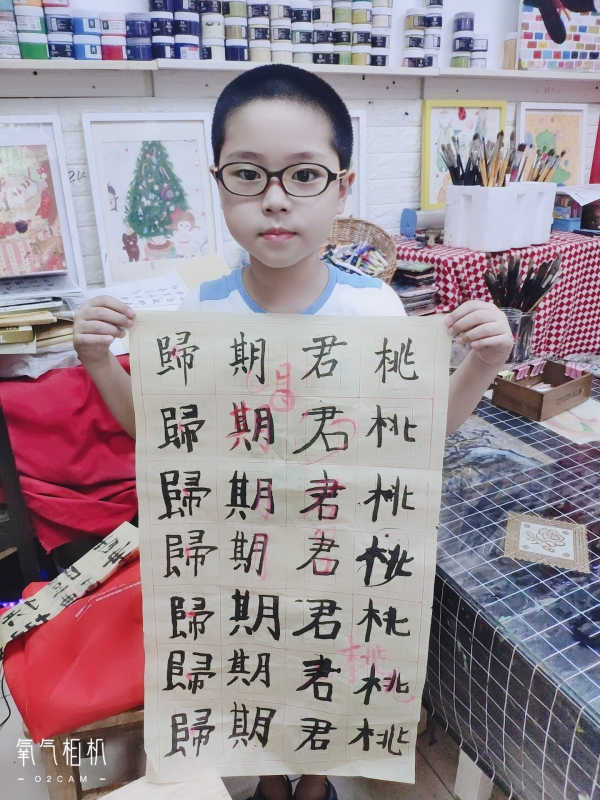 桃桃桃桃桃桃桃
君君君君君君君
期期期期期期期
歸歸歸歸歸歸歸
桃
氧气相机
– O2CAM –